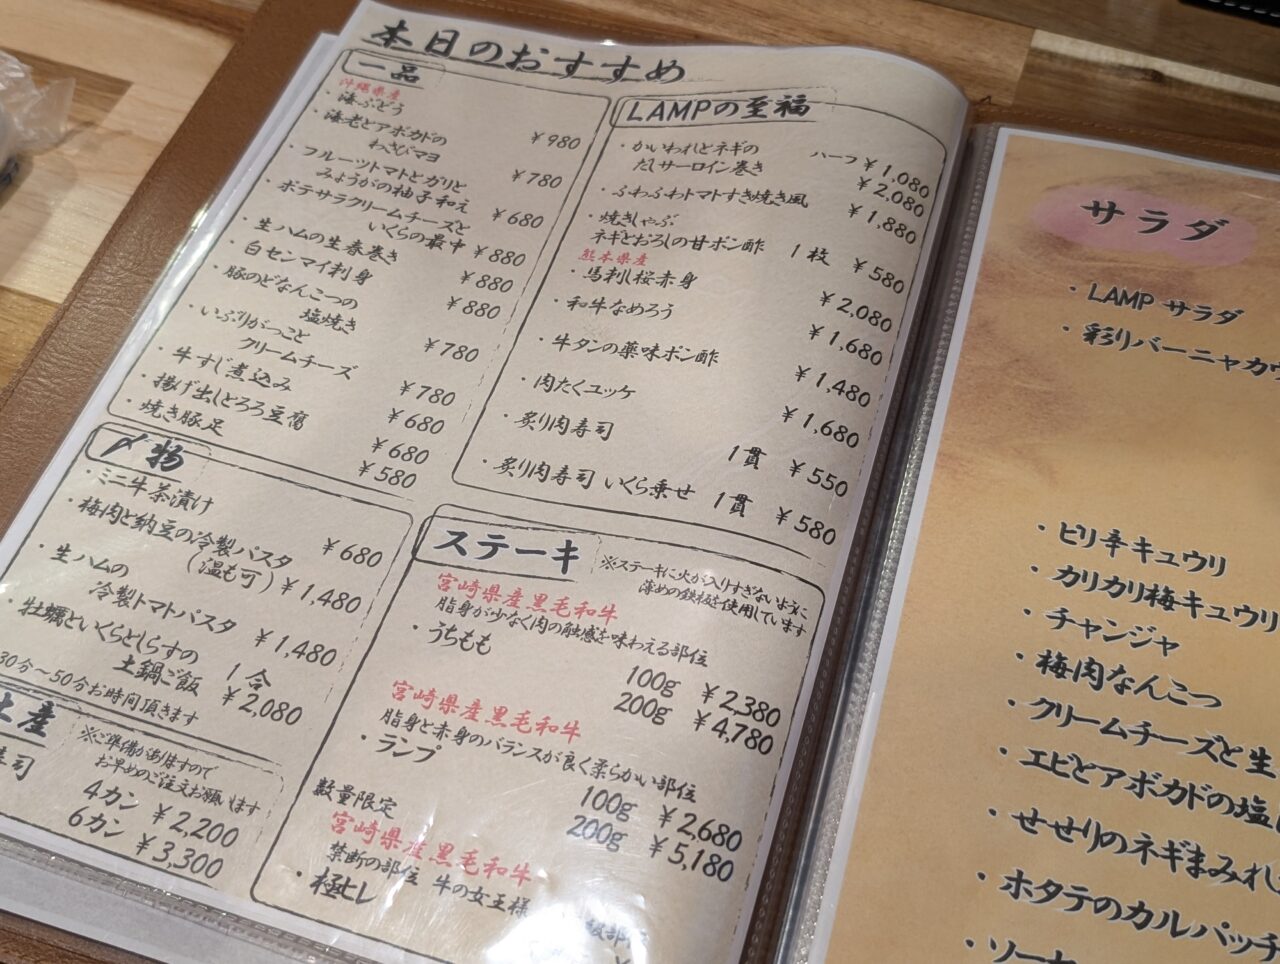 本日のおすすめ
一品
沖縄県産
・海ぶどう ￥980
・海老とアボカドの
わさびマヨ ￥780
・フルーツトマトとガリと
みょうがの柚子和え ￥680
・ポテサラクリームチーズと
いくらの最中 ￥880
・生ハムの生春巻き ￥880
・白センマイ刺身 ￥880
・豚のどなんこつの
塩焼き ￥780
・いぶりがっこと
クリームチーズ ￥780
・牛すじ煮込み ￥680
・揚げ出しとろろ豆腐 ￥680
・焼き豚足 ￥580
〆物
・ミニ牛茶漬け ￥680
・梅肉と納豆の冷製パスタ
(温も可) ￥1,480
・生ハムの
冷製トマトパスタ ￥1,480
・牡蠣といくらとしらすの
土鍋ご飯 1合 ￥2,080
30分〜50分お時間頂きます
土産
※ご準備がありますので
お早めのご注文お願います
寿司
4カン ￥2,200
6カン ￥3,300
LAMPの至福
・かいわれとネギの ハーフ ￥1,080
だしサーロイン巻き ￥2,080
・ふわふわトマトすき焼き風 ￥1,880
・焼きしゃぶ
ネギとおろしの甘ポン酢 1枚 ￥580
熊本県産
・馬刺し桜赤身 ￥2,080
・和牛なめろう ￥1,680
・牛タンの薬味ポン酢 ￥1,480
・肉たくユッケ ￥1,680
・炙り肉寿司 1貫 ￥550
・炙り肉寿司 いくら乗せ 1貫 ￥580
ステーキ
※ステーキに火が入りすぎないように
薄めの鉄板を使用しています
宮崎県産黒毛和牛
脂身が少なく肉の触感を味わえる部位
・うちもも
100g ￥2,380
200g ￥4,780
宮崎県産黒毛和牛
脂身と赤身のバランスが良く柔らかい部位
・ランプ
100g ￥2,680
200g ￥5,180
数量限定
宮崎県産黒毛和牛
禁断の部位 牛の女王様
・極ヒレ
サラダ
・LAMP サラダ
・彩りバーニャカウ
・ピリ辛キュウリ
・カリカリ梅キュウリ
・チャンジャ
・梅肉なんこつ
・クリームチーズと生
・エビとアボカドの塩
・せせりのネギまみれ
・ホタテのカルパッチ